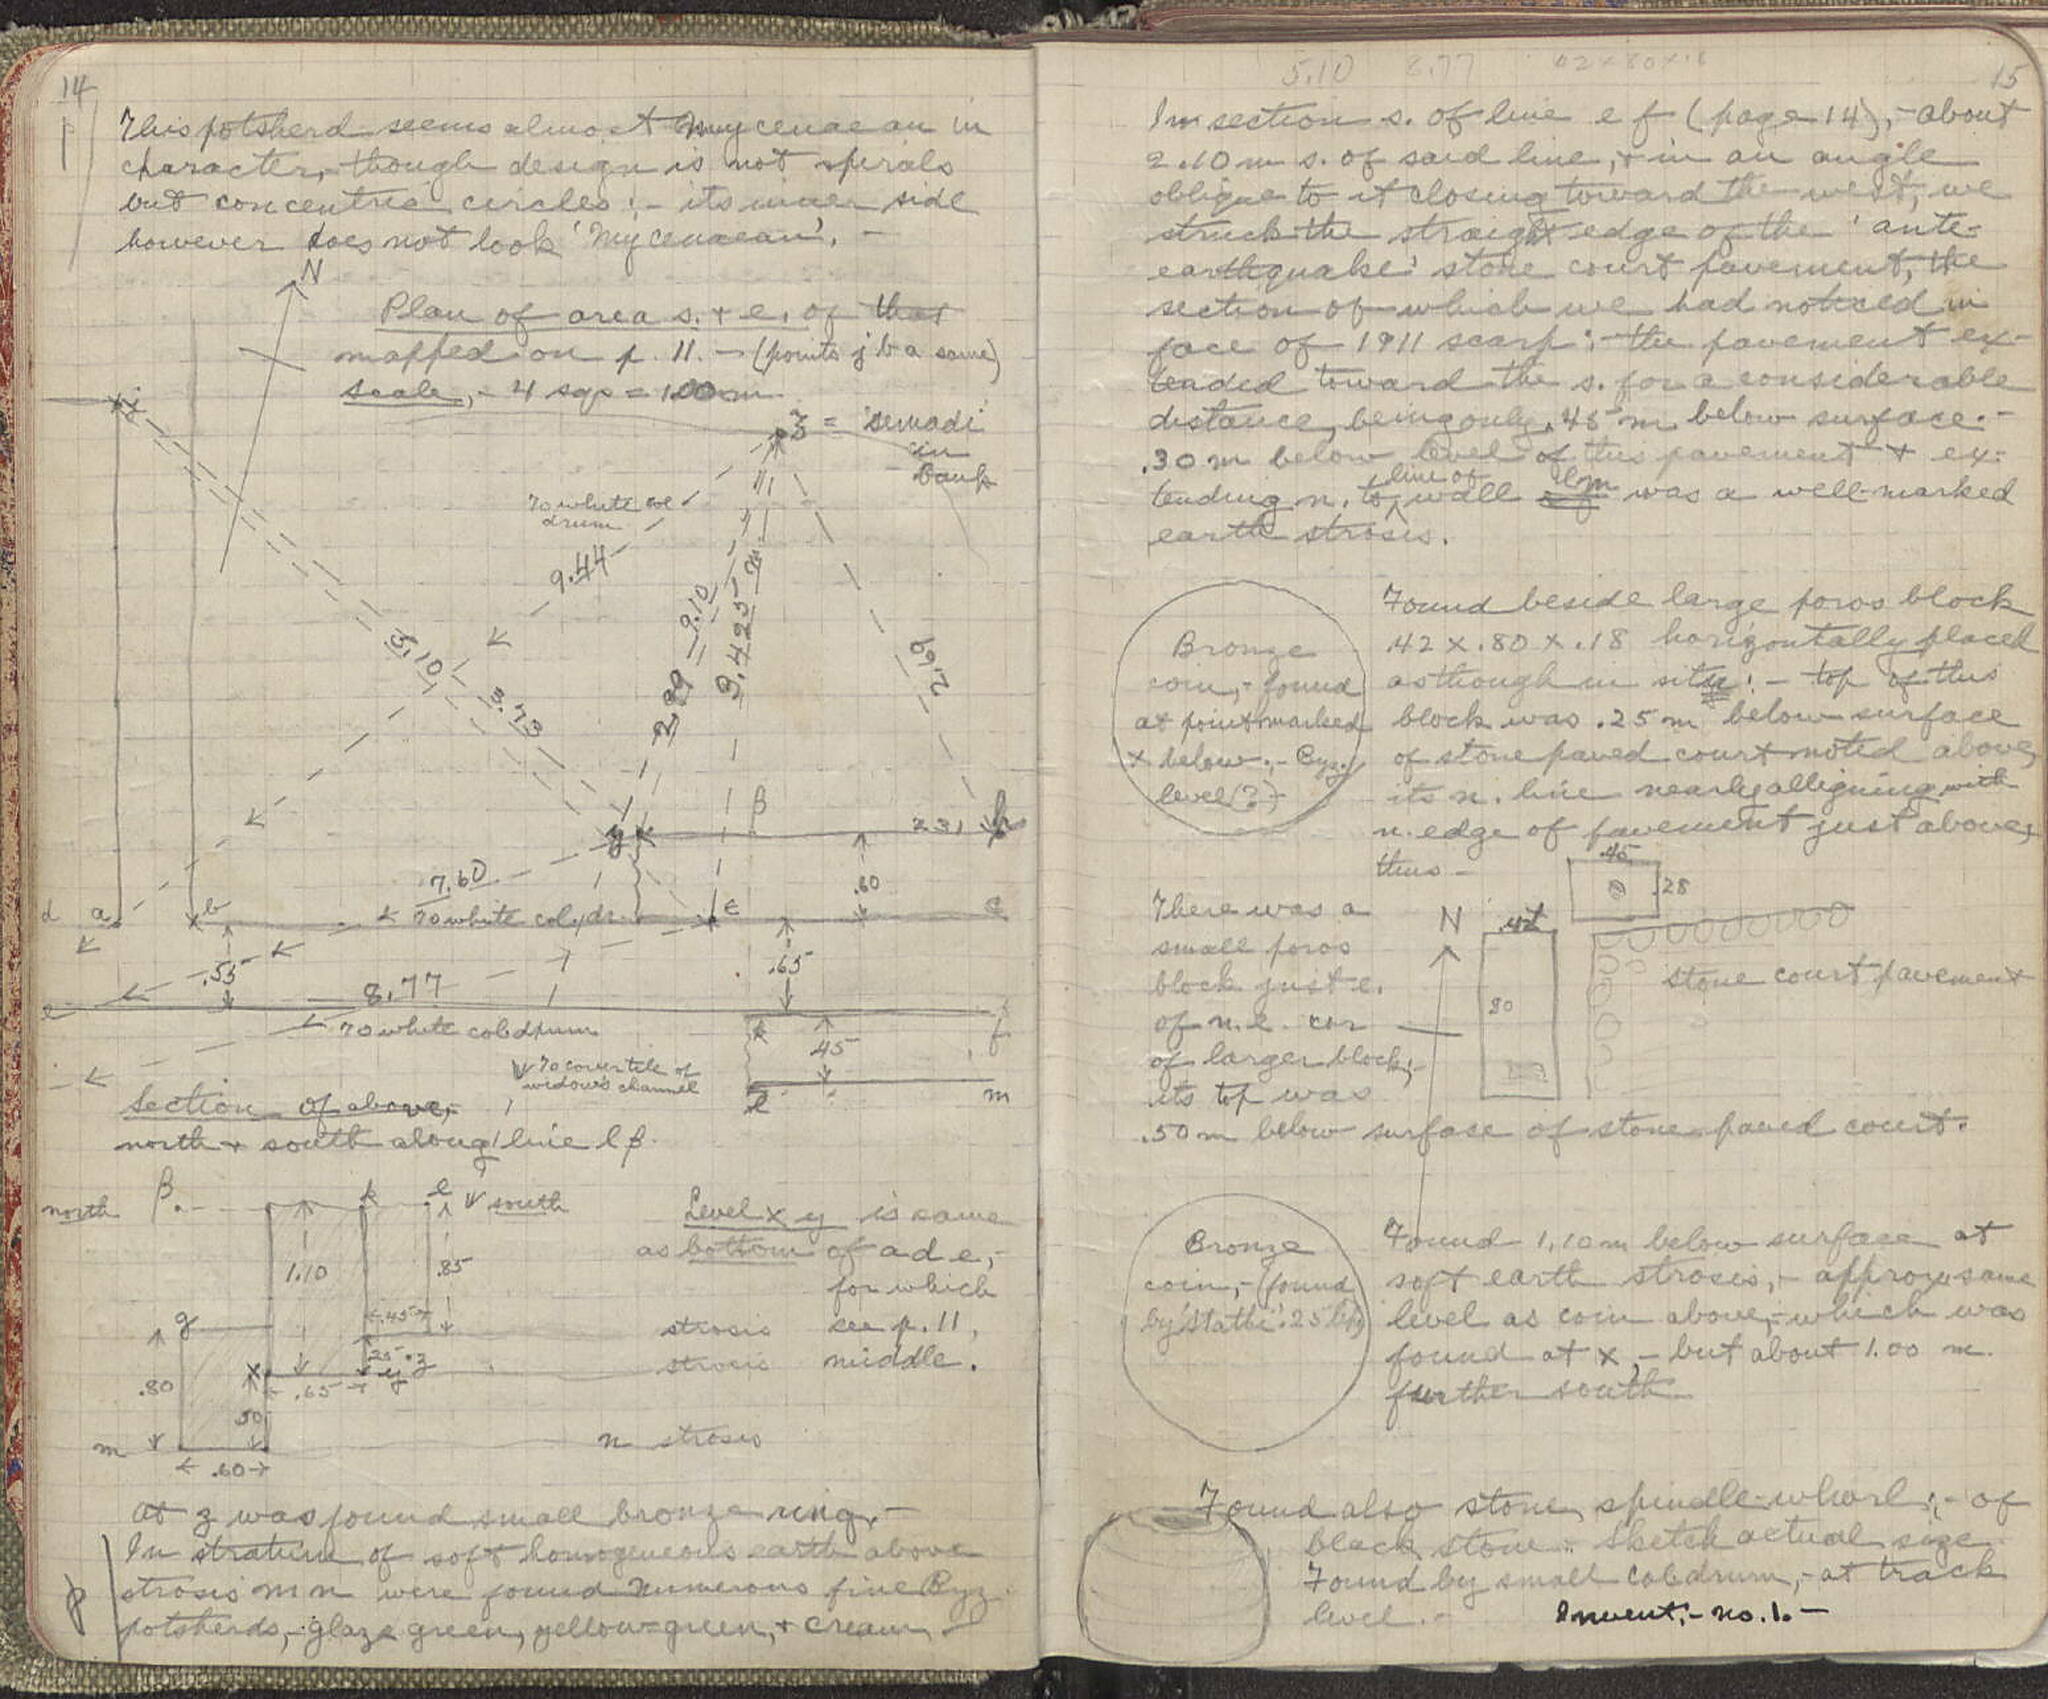 14
This potsherd seems almost Mycenaean in
character,- though design is not spirals
but concentric circles;- its inner side
however does not look 'Mycenaean'. -
N
Plan of area s. + e. of that
mapped on p. 11. - (points j b a same)
Scale,- 4 sqs = 1.00 m.
j
z = 'simadi'
in
bank
To white col
drum
9.44
5.10
3.73
2.89 = 9.10
3.425 m
2.69
β
g
2.31
h
7.60
.60
d
a
b
To white col. dr.
ε
c
.55
.65
8.77
e
f
To white col. drum
k
.45
To cover tile of
widow's channel
l
m
Section of above,-
north + south along line l β.
north
β
k
l
south
Level x y is same
as bottom of a d e,-
for which
see p. 11,
middle.
1.10
.85
g
.45
strosis
.25
z
strosis
.80
x
.65
y
.50
m
n strosis
.60
At z was found small bronze ring. -
In stratum of soft homogeneous earth above
strosis m n were found numerous fine Byz.
potsherds,- glaze green, yellow-green, + cream. -
p
5.10 8.77 .42 x .80 x .18
15
In section s. of line e f (page 14),- about
2.10 m s. of said line, + in an angle
oblique to it closing toward the west, we
struck the straight edge of the 'ante-
earthquake' stone court pavement, the
section of which we had noticed in
face of 1911 scarp;- the pavement ex-
tended toward the s. for a considerable
distance, being only .45 m below surface. -
.30 m below level of this pavement + ex-
tending n. to line of wall ef lm was a well-marked
earth strosis.
Bronze
coin,- found
at point marked
x below.- Byz.
level (?) -
Found beside large poros block
.42 x .80 x .18 horizontally placed
as though in situ;- top of this
block was .25 m below surface
of stone paved court noted above,
its n. line nearly alligning with
n. edge of pavement just above,
thus -
.45
.28
There was a
small poros
block just e.
of n.e. cor
of larger block;-
its top was
.50 m below surface of stone paved court.
N
.42
.80
stone court pavement
Bronze
coin,- (found
by 'Stathi': 25 lep)
Found 1.10 m below surface at
soft earth strosis,- approx. same
level as coin above,- which was
found at x,- but about 1.00 m.
further south
Found also stone spindle-whorl;- of
black stone. Sketch actual size
Found by small col. drum,- at track
level. - Invent.- no. 1. -